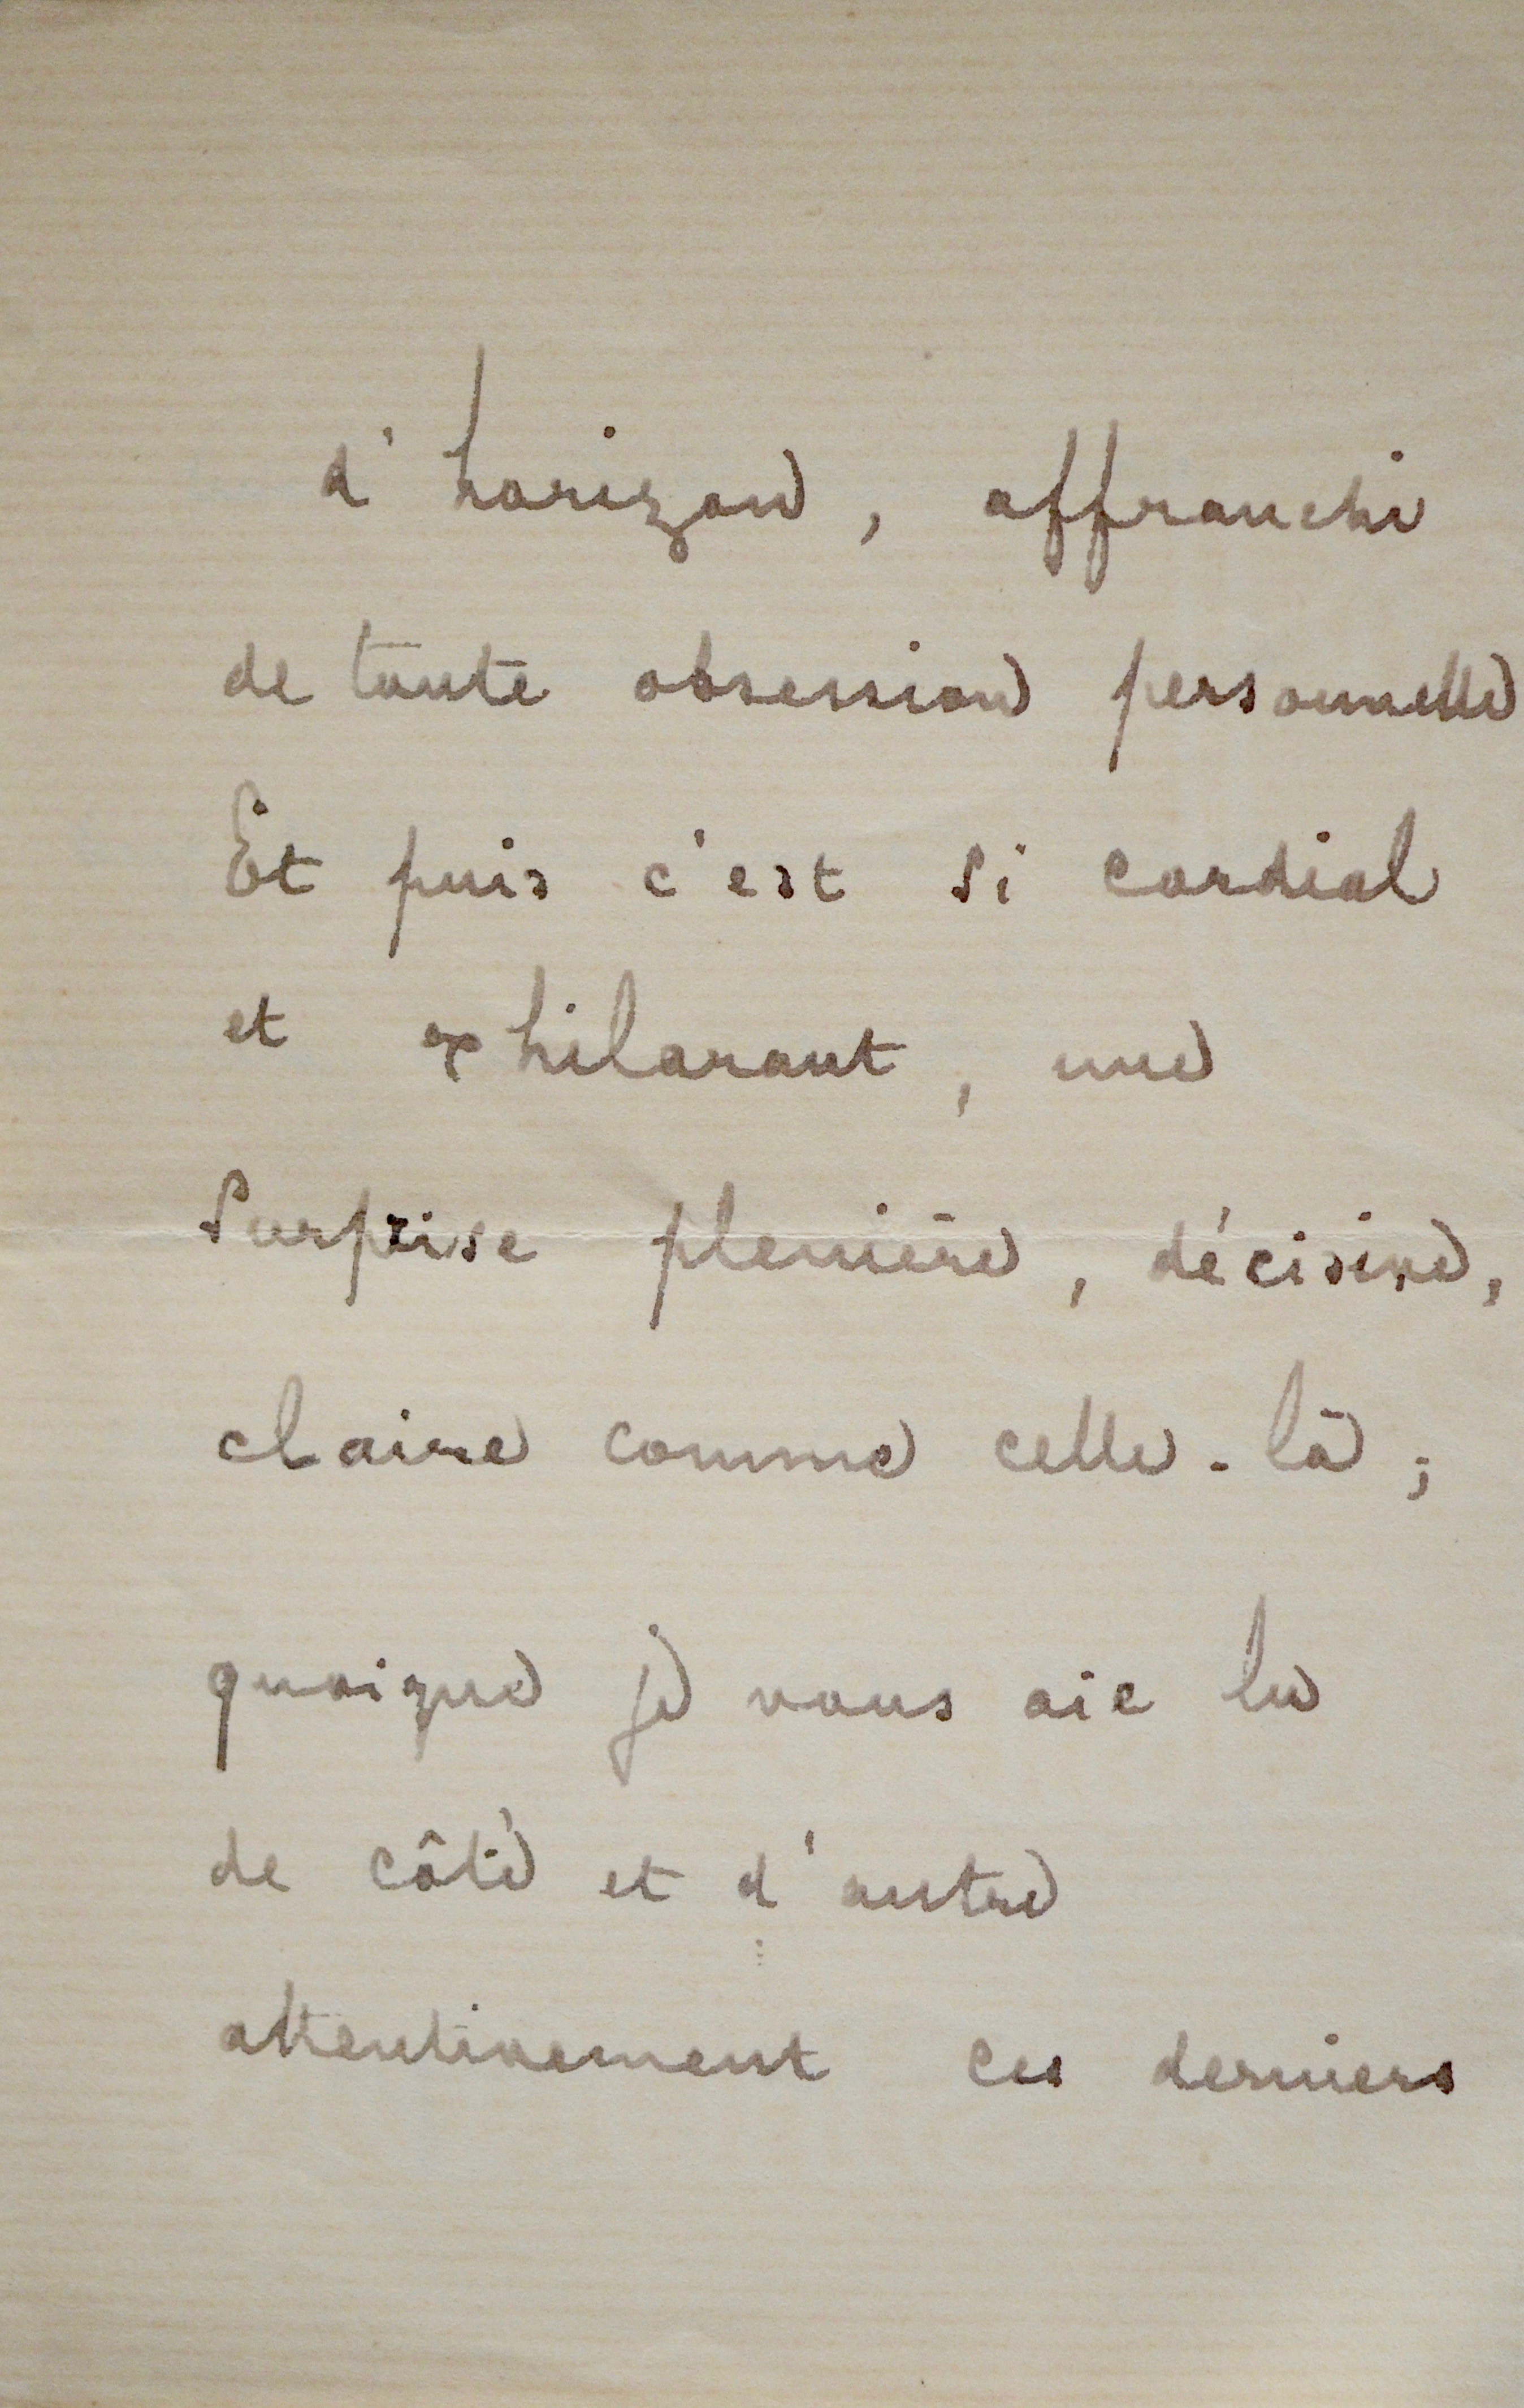 d'horizon, affranchi
de toute obsession personnelle
Et puis c'est si cordial
et exhilarant, une
surprise plenière, décisive,
claire comme celle-là ;
quoique je vous aie lu
de côté et d'autre
attentivement ces derniers